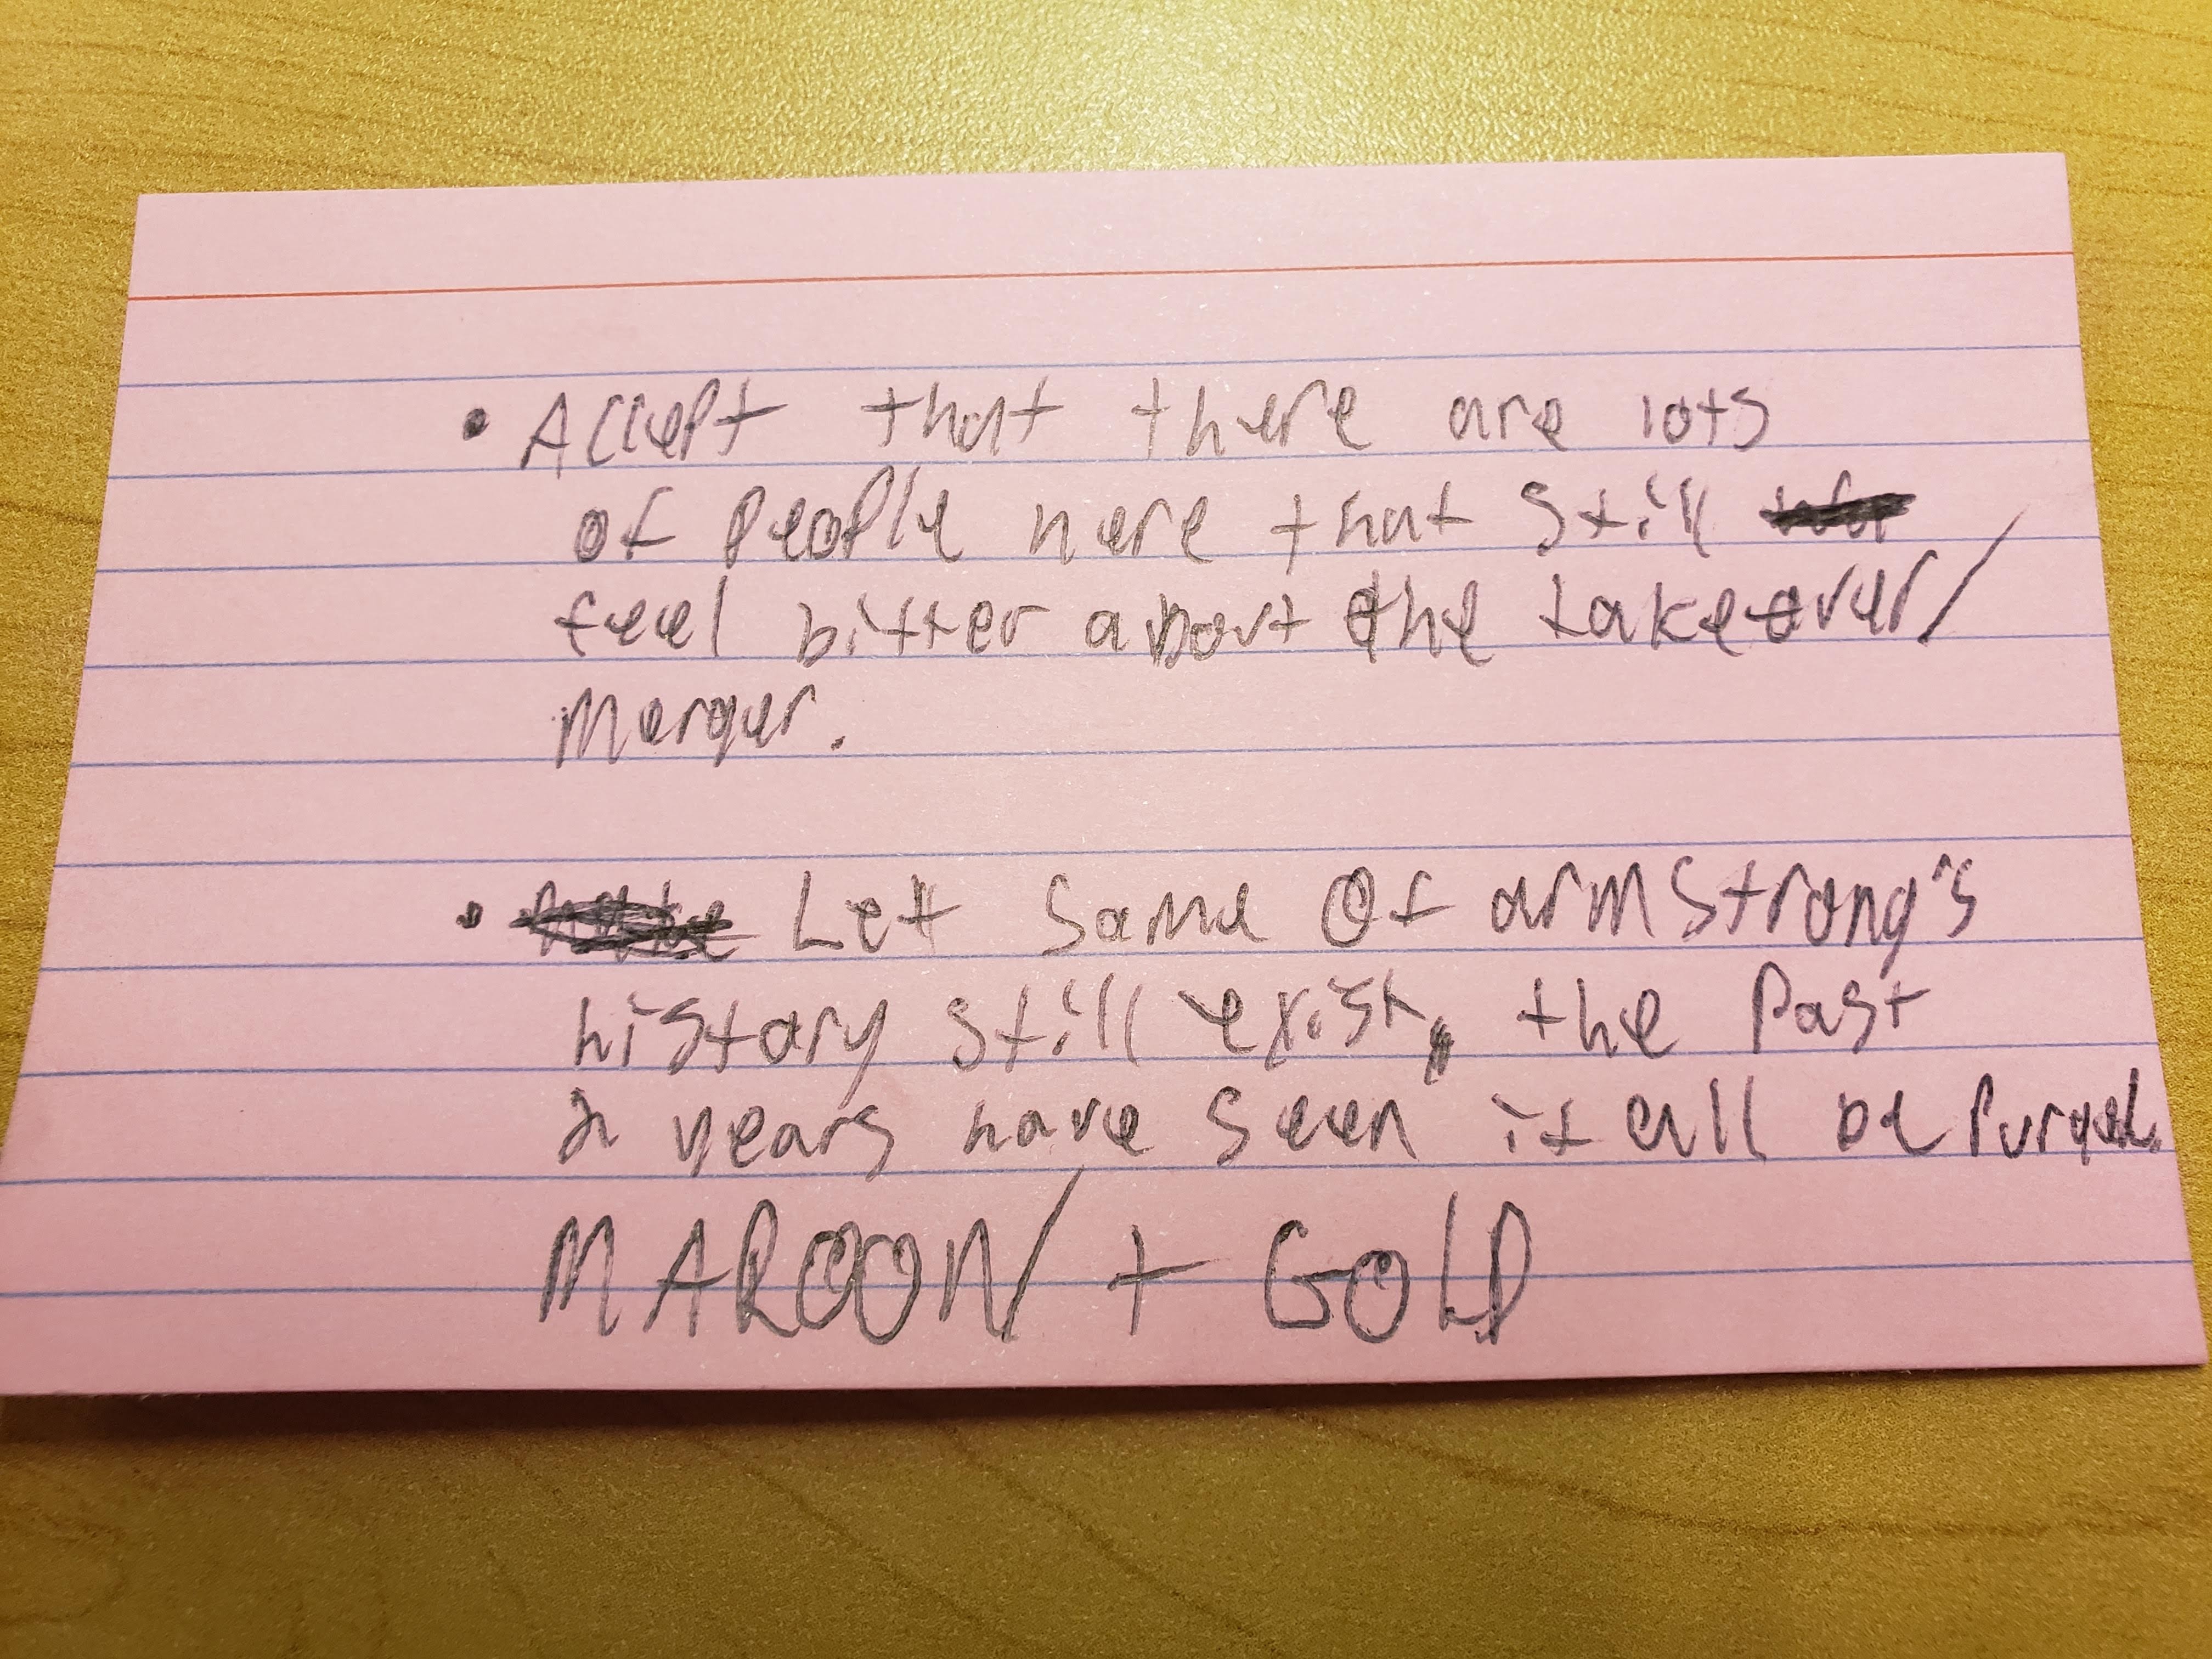 • Accept that there are lots
of People here that still
feel bitter about the takeover/
Merger.
• Let some of armstrong's
history still exist, the Past
2 years have seen it all be Purged.
MAROON + GOLD